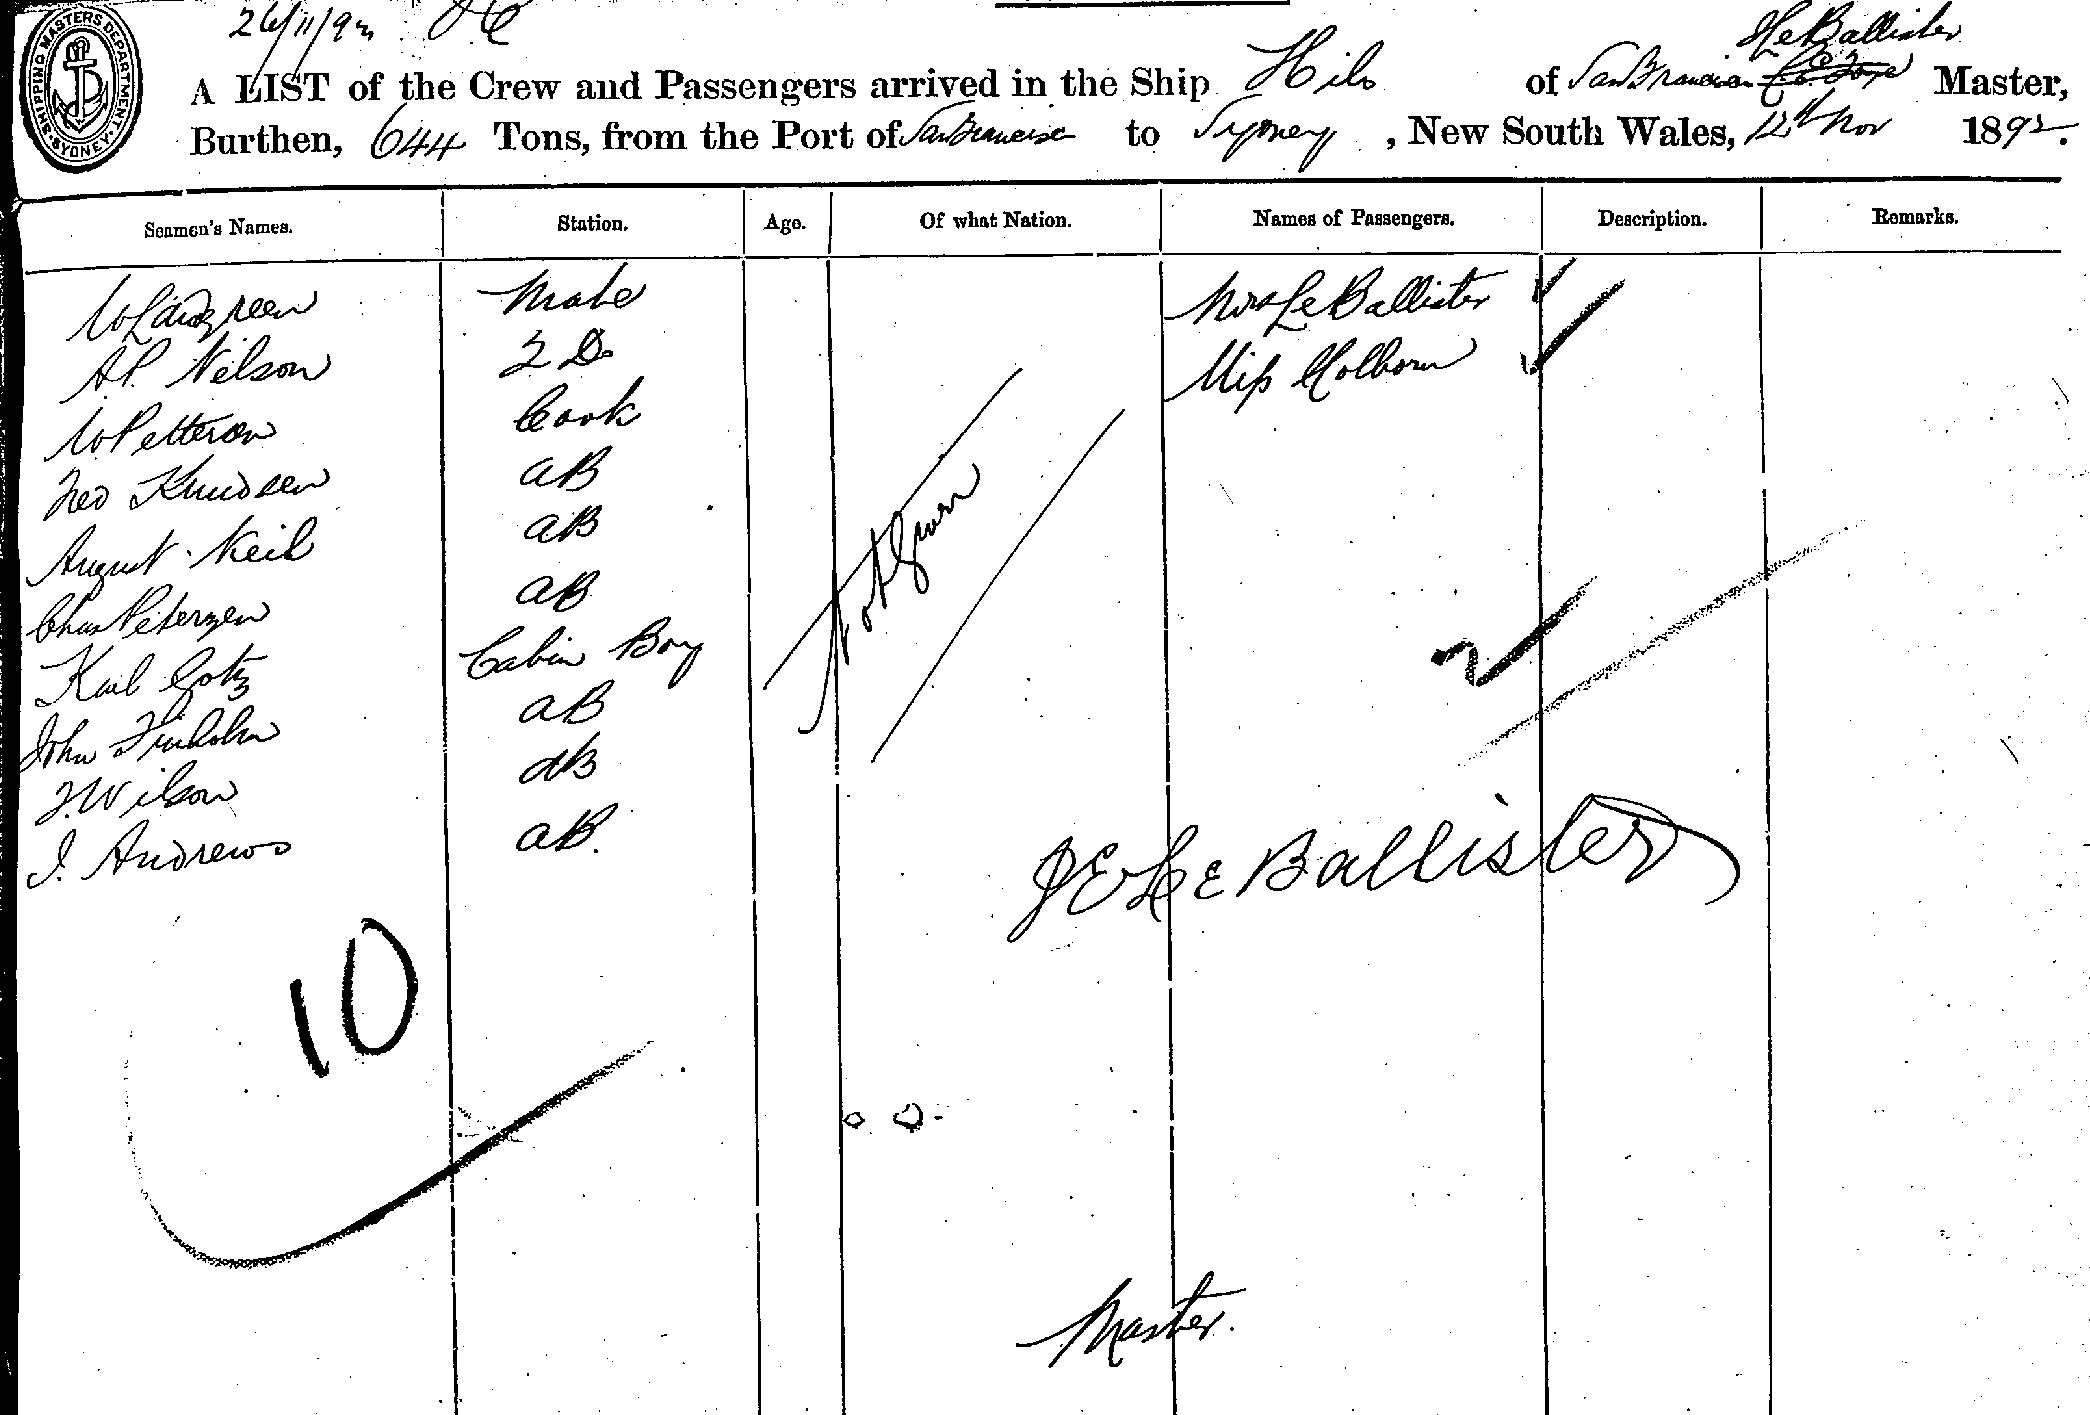 SHIPPING MASTERS DEPARTMENT SYDNEY
26/11/92
Le Ballister
A LIST of the Crew and Passengers arrived in the Ship Hilo of San Francisco Master,
Burthen, 644 Tons, from the Port of San Francisco to Sydney, New South Wales, 12th Nov 1892.
Seamen's Names. Station. Age. Of what Nation. Names of Passengers. Description. Remarks.
Mate Mrs Le Ballister
A.P. Nelson 2 Do Miss Holborn
W Petterson Cook
Knudsen AB
August Neil AB
Chas Peterzen AB
Karl Gotz Cabin Boy
John AB
J. Wilson AB
J. Andrews AB.
Not Given
2
J E Le Ballister
10
Master.